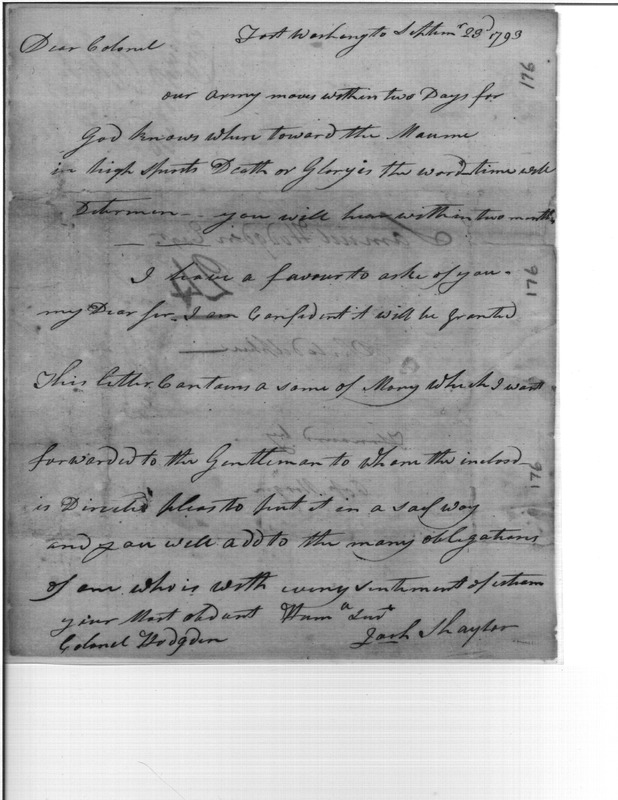 Fort Washingto Septemr 23d 1793
Dear Colonel
our army moves within two Days for
God knows where toward the Maume
in high Spirits Death or Glory is the word time will
Determen -- you will hear within two months
I have a favour to aske of you -
my Dear sir. I am Confident it will be granted
This letter Contains a some of Mony which I want
forwarded to the Gentleman to whom the inclosd
is Directed pleas to put it in a saef way
and you will add to the many obligations
of one who is with every sentiment of esteam
your Most obdant Huma Sert
Colonel Hodgden
Josh Shaylor
176
176
176
Samuel Hodgdon Esqr
24